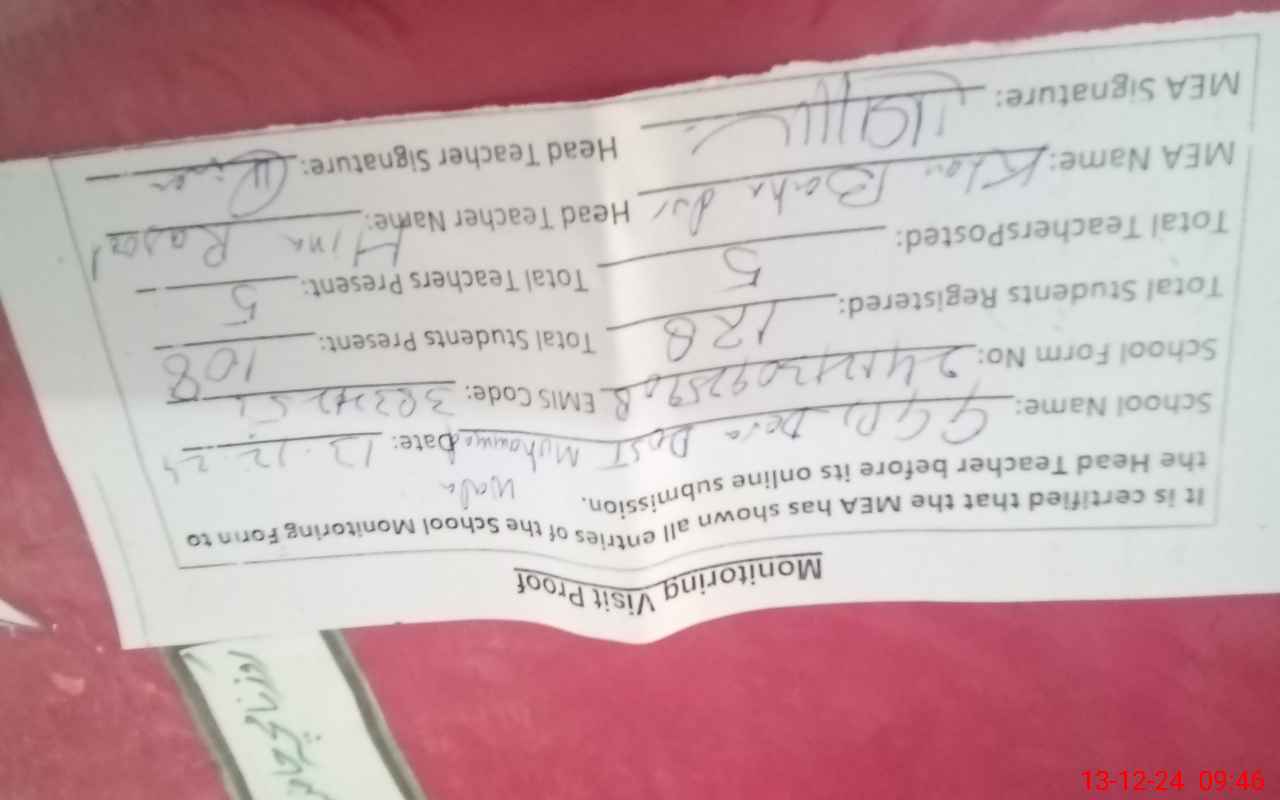 Monitoring Visit Proof
It is certified that the MEA has shown all entries of the School Monitoring Form to
the Head Teacher before its online submission.
School Name: GGPS Dera Dost Muhammad Wala Date: 13.12.24
School Form No: EMIS Code:
Total Students Registered: 128 Total Students Present: 108
Total TeachersPosted: 5 Total Teachers Present: 5
MEA Name: Khan Baha dur Head Teacher Name: Hina Rasool
MEA Signature: Head Teacher Signature:
13-12-24 09:46